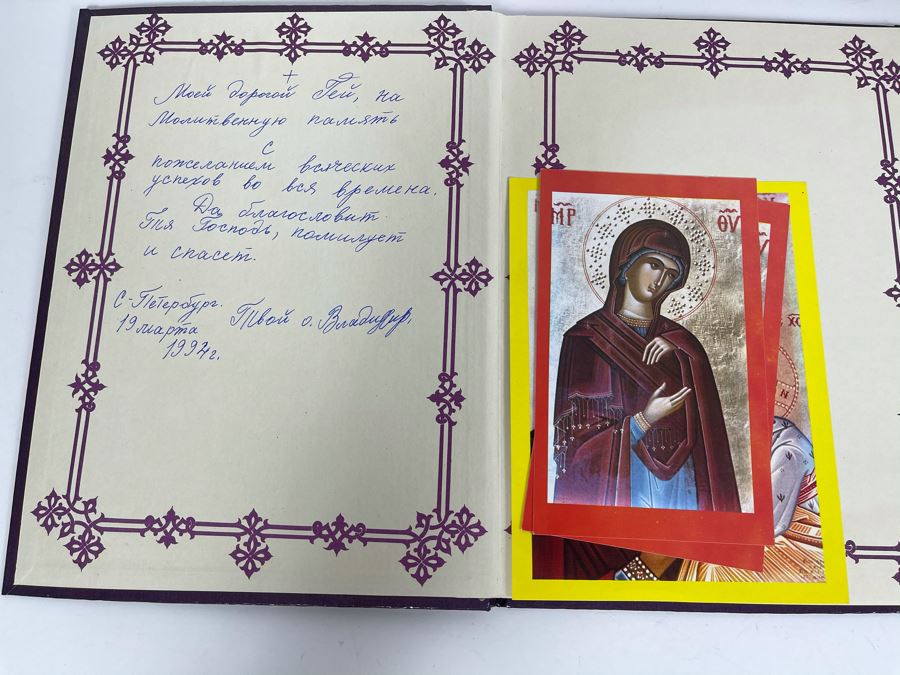 +
Моей дорогой Гей, на
Молитвенную память
с
пожеланием всяческих
успехов во вся времена.
Да благословит
Тя Господь, помилует
и спасет.
С-Петербург.
19 марта
1994г.
Твой о. Владимир.
МР
ΘΥ
N